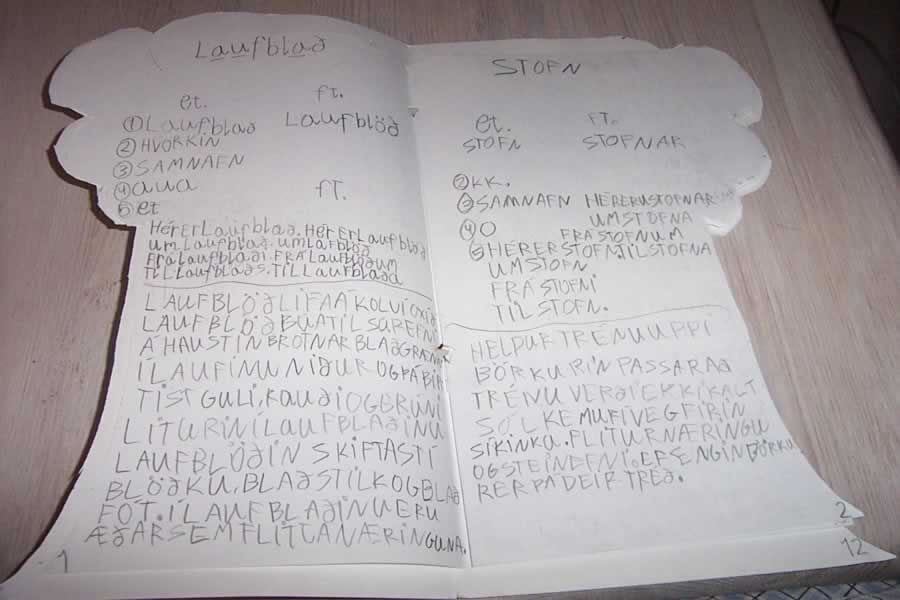 Laufblað
et. ft.
① Laufblað Laufblöð
② HVORKIN
③ SAMNAFN
④ aua
5 et fT.
HérerLaufblað. HérerLaufblöð
um Laufblað. umLafblöð
FráLaufblaði. FRÁLaufblöðum
TilLaufblaðs. TilLaufblaða
LAUFBLÖÐ LIFA Á KOLVÍOXIÐ
LAUFBLÖÐ BÚA TIL SÚREFNI
Á HAUSTIN BROTNAR BLAÐGRÆN
Í LAUFINU NIÐUR OG ÞÁ BIR
TIST GULI, RAUÐI OG BRÚNI
LITURINÍ LAUFBLAÐINU
LAUFBLÖÐIN SKIFTAST Í
BLÖÐKU, BLAÐSTILK OG BLAÐ
FÓT. Í LAUFBLAÐINU ERU
ÆÐAR SEM FLITUA NÆRINGUNA.
1
STOFN
et. FT.
STOFN STOFNAR
② KK.
③ SAMNAFN HÉRERUSTOFNAR
④ O UMSTOFNA
FRÁSTOFNUM
⑤ HÉRERSTOFN. TILSTOFNA
UMSTOFN
FRÁSTOFNI
TILSTOFN.
HELPUR TRÉNU UPPI
BÖRKURIN PASSAR AÐ
TRÉNU VERÐI EKKI KALT
SÓLKEMUFIVEGFIRIN
SÍKINKU. FLITUR NÆRINGU
OG STEINDEFNI. EF ENGIN BÖRKU
RER ÞÁ DEIR TRÉÐ.
2
12